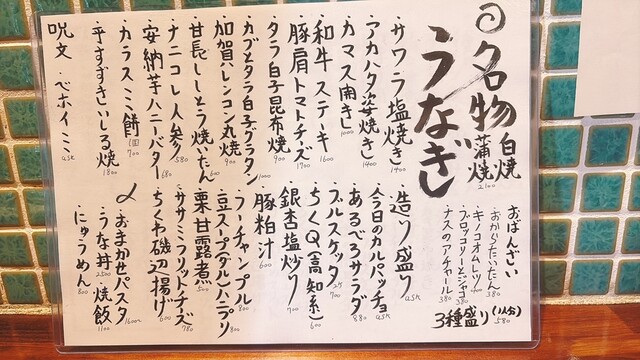 名物
うなぎ
白焼
蒲焼 2100
おばんざい
・おからたいたん 380
・キノコオムレツ 400
・ブロッコリーとジャコ 380
・ナスのアチャール 380
3種盛り(1人分) 580
・サワラ塩焼き 1400
・アカハタ姿焼き 1400
・カマス開き 1000
・和牛ステーキ 1600
・豚肩トマトチーズ 1700
・タラ白子昆布焼 900
・カブとタラ白子グラタン 1000
・加賀レンコン丸焼 900
・甘長ししとう焼いたん 600
・ナニコレ人参 580
・安納芋ハニーバター 680
・カラスミ餅 1コ 700
・平すずきいしる焼 1800
呪文・ベホイミ ask
・造り盛り ask
・今日のカルパッチョ ask
・あるべろサラダ 880
・ブルスケッタ 2コ 700
・ちくQ(高知系) 600
・銀杏塩炒り 700
・豚粕汁 600
・フーチャンプル 800
・豆スープ(ダル)ハプリ 800
・栗甘露煮 500
・ササミフリットチーズ 780
・ちくわ磯辺揚げ 600
〆
・おまかせパスタ 1600〜
・うな丼 2500
・焼飯 1100
・にゅうめん 800